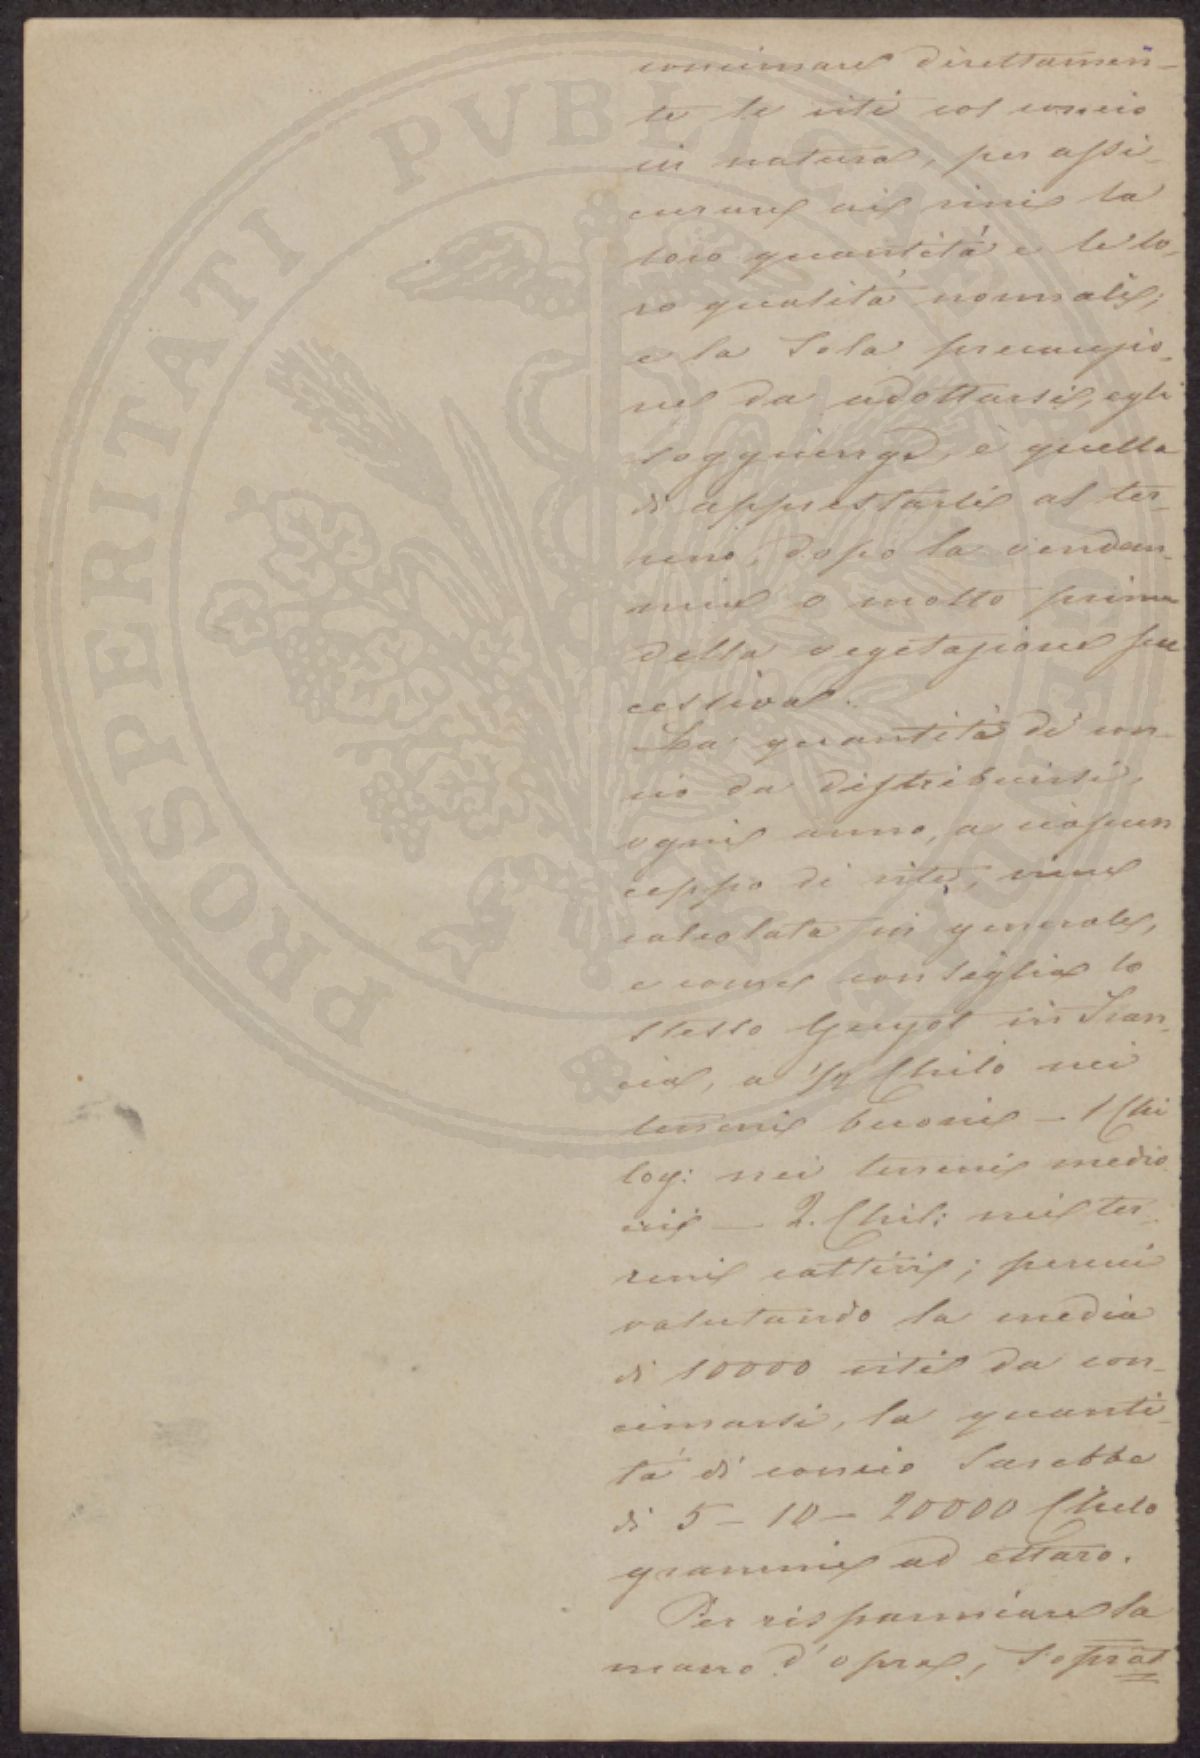 concimare direttamen-
te le viti col concio
in natura, per assi-
curare ai vini la
loro quantità e la lo-
ro qualità normale;
e la sola precauzio-
ne da adottarsi, egli
soggiunge, è quella
di apprestarli al ter-
reno, dopo la vendem-
mia o molto prima
della vegetazione suc
cessiva.
La quantità di con-
cio da distribuirsi
ogni anno, a ciascun
ceppo di vite, viene
calcolata in generale,
e come consiglia lo
stesso Guyot in Fran-
cia, a 1/2 Chilo nei
terreni buoni — 1 Chi
log: nei terreni medio
cri — 2. Chil: nei ter-
reni cattivi; percui
valutando la media
di 10000 viti da con-
cimarsi, la quanti-
tà di concio sarebbe
di 5 — 10 — 20000 Chilo
grammi ad ettaro.
Per risparmiare la
mano d'opra, soprat
PROSPERITATI PVBLICAE AVGENDAE